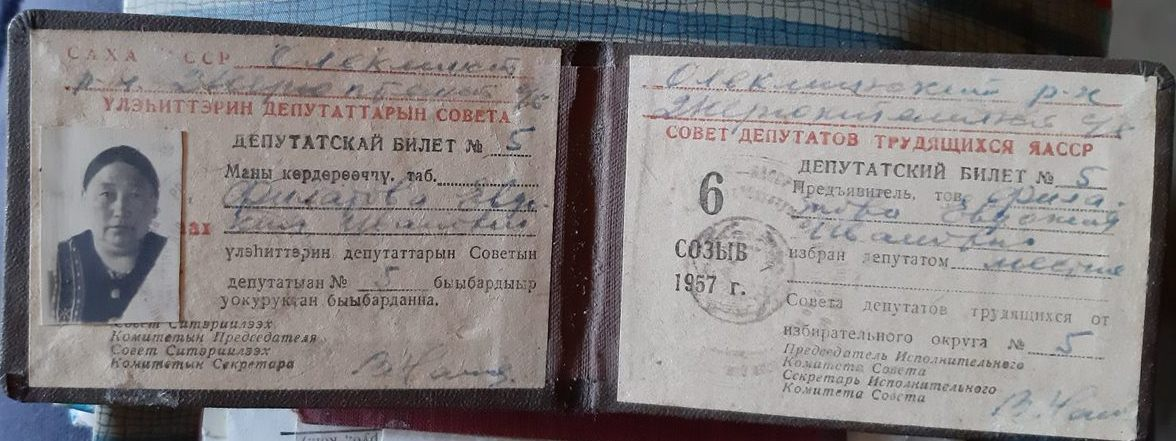 САХА АССР Олекминск
р-н
ҮЛЭҺИТТЭРИН ДЕПУТАТТАРЫН СОВЕТА
ДЕПУТАТСКАЙ БИЛЕТ № 5
Маны көрдөрөөччү, таб.
Филатова Евдо-
кия Ивановна
үлэһиттэрин депутаттарын Советын
депутатыан № 5 быыбардыыр
уокуруктан быыбарданна.
Совет Ситэриилээх
Комитетын Председателя
Совет Ситэриилээх
Комитетын Секретара
Олекминский р-н
СОВЕТ ДЕПУТАТОВ ТРУДЯЩИХСЯ ЯАССР
ДЕПУТАТСКИЙ БИЛЕТ № 5
Предъявитель, тов. Фила-
това Евдокия
Ивановна
6
СОЗЫВ
1957 г.
избран депутатом
Совета депутатов трудящихся от
избирательного округа № 5
Председатель Исполнительного
Комитета Совета
Секретарь Исполнительного
Комитета Совета